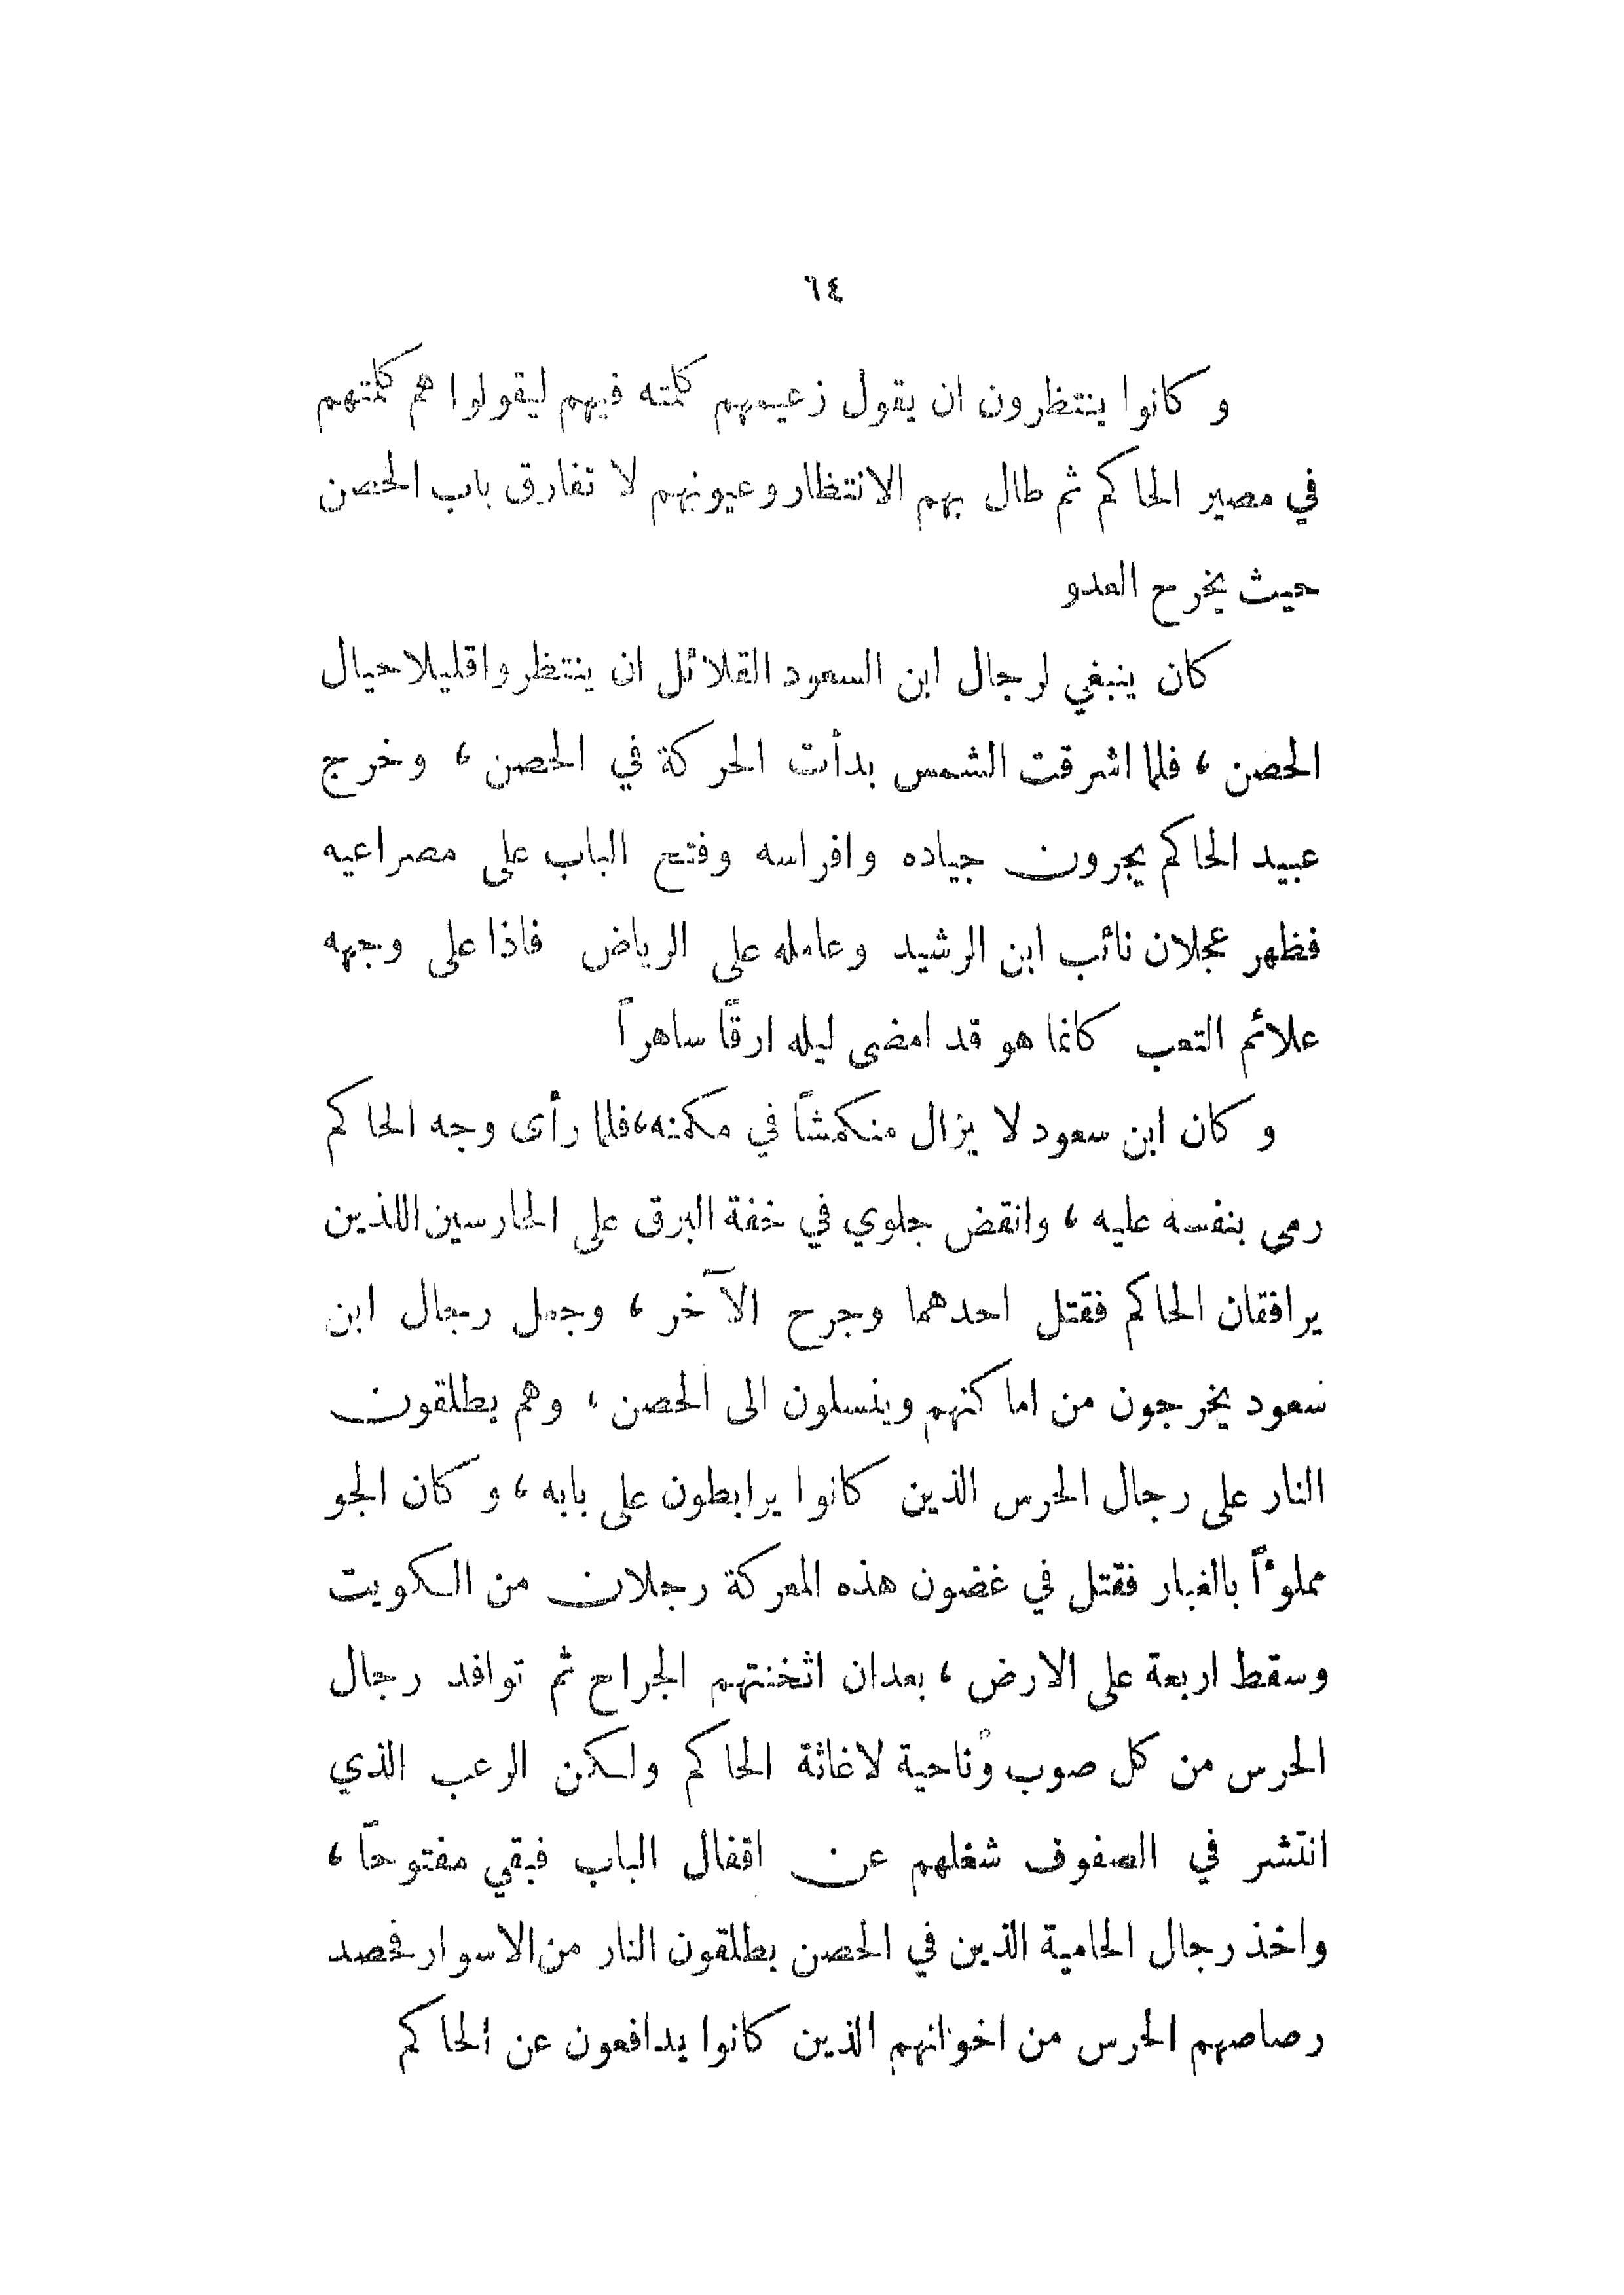 ٦٤
وكانوا ينتظرون ان يقول زعيمهم كلمته فيهم ليقولوا هم كلمتهم
في مصير الحاكم ثم طال بهم الانتظار وعيونهم لا تفارق باب الحصن
حيث يخرح العدو
كان ينبغي لرجال ابن السعود القلائل ان ينتظروا قليلا حيال
الحصن ، فلما اشرقت الشمس بدأت الحركة في الحصن ، وخرج
عبيد الحاكم يجرون جياده وافراسه وفتح الباب على مصراعيه
فظهر عجلان نائب ابن الرشيد وعامله على الرياض فاذا على وجهه
علائم التعب كانما هو قد امضى ليله ارقاً ساهراً
وكان ابن سعود لا يزال منكمشاً في مكمنه، فلما رأى وجه الحاكم
رمى بنفسه عليه ، وانقض جلوي في خفة البرق على الحارسين اللذين
يرافقان الحاكم فقتل احدهما وجرح الآخر ، وجعل رجال ابن
سعود يخرجون من اماكنهم وينسلون الى الحصن ، وهم يطلقون
النار على رجال الحرس الذين كانوا يرابطون على بابه ، وكان الجو
مملوءاً بالغبار فقتل في غضون هذه المعركة رجلان من الكويت
وسقط اربعة على الارض ، بعدان اثخنتهم الجراح ثم توافد رجال
الحرس من كل صوب وناحية لاغاثة الحاكم ولكن الرعب الذي
انتشر في الصفوف شغلهم عن اقفال الباب فبقي مفتوحاً ،
واخذ رجال الحامية الذين في الحصن يطلقون النار من الاسوار فحصد
رصاصهم الحرس من اخوانهم الذين كانوا يدافعون عن الحاكم